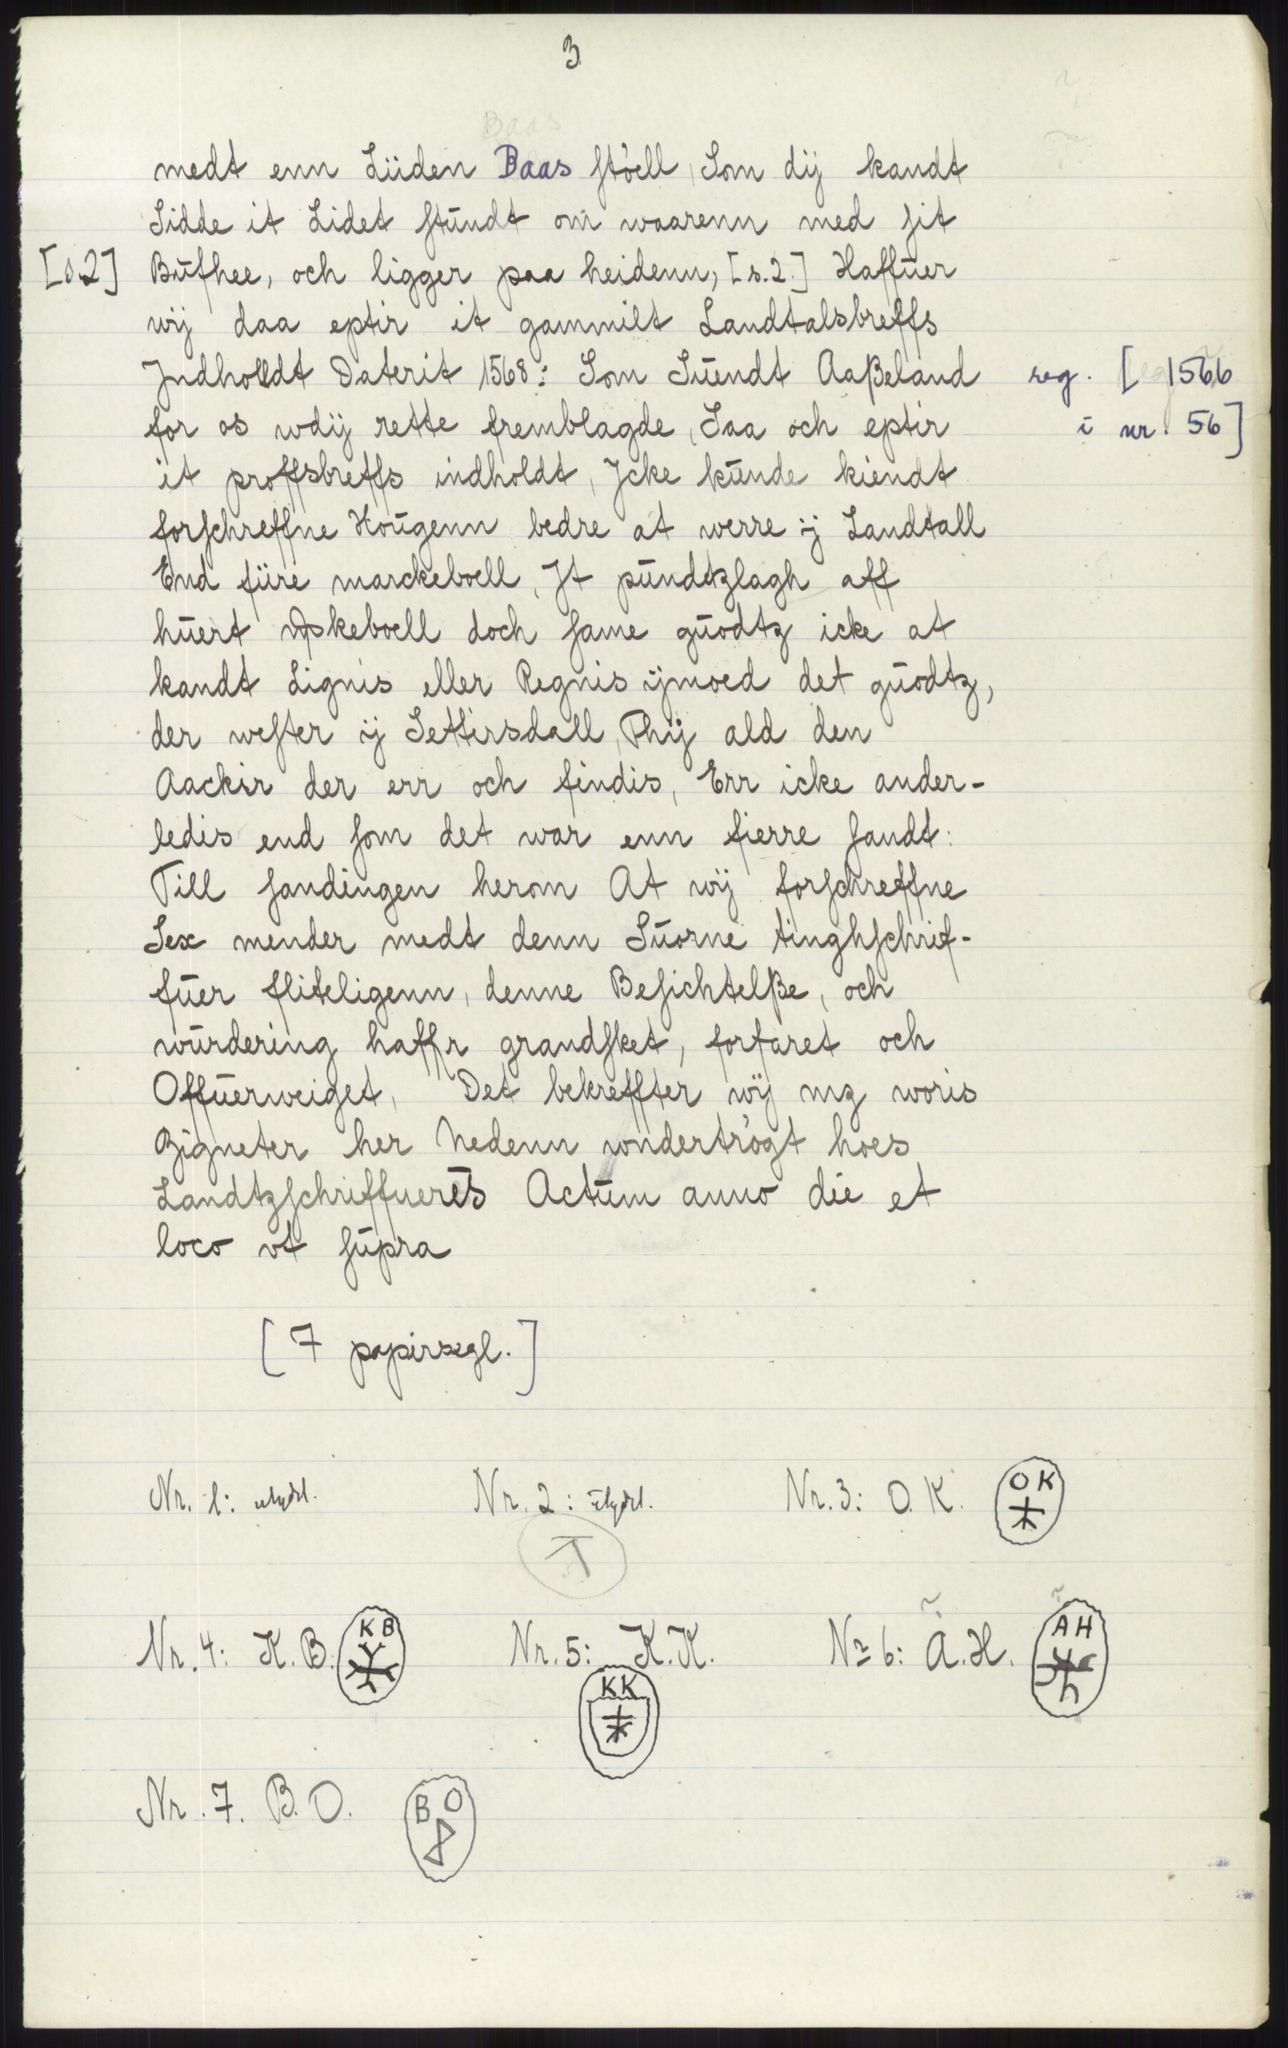 3
Baas
medt enn Liiden Baas støell, Som dÿ kandt
Sidde it Lidet stundt om waarenn med sit
[s.2] Bufhee, och ligger paa heidenn, [s.2.] Haffuer
wÿ daa eptir it gammilt Landtalsbreffs
Jndholdt Daterit 1568: Som Suendt Aaßeland reg. [1566
for os wdÿ rette fremblagde, Saa och eptir i nr. 56]
it proffsbreffs indholdt, Jcke kunde kiendt
forschreffne Hougenn bedre at werre ÿ Landtall
End fiire marckeboell, Jt pundtzlagh aff
huert øskeboell doch same guodtz icke at
kandt Lignis eller Regnis ÿmoed det guodtz,
der wester ÿ Settirsdall, Thÿ ald den
Aackir der err och findis, Err icke ander-
ledis end som det war enn fierre sandt:
Till sandingen herom At wÿ forschreffne
Sex mender medt denn Suorne tinghschrif-
fuer fliteligenn, denne Besichtelße, och
wurdering haffr grandsket, forfaret och
Offuerweiget, Det bekreffter wÿ mz woris
Zigneter her Nedenn wndertrøgt hoes
Landtzschriffueres Actum anno die et
loco vt supra
[7 papirsegl.]
Nr. 1: utydel. Nr. 2: utydel. Nr. 3: O. K. OK
Nr. 4: K. B. KB Nr. 5: K. K. KK Nr 6: A. H. AH
Nr. 7. B. O. BO